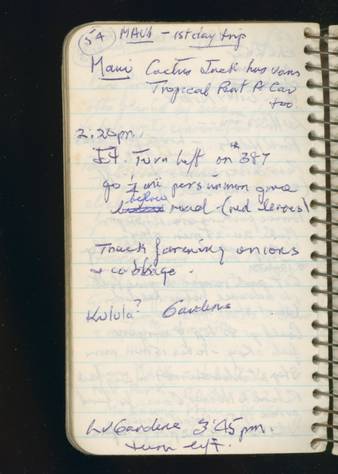 54 MAUI - 1st day trip
Maui Cactus Jack has vans
Tropical Rent A Car
too
2.20pm.
Turn left on # 387
go ½ mi persimmon grove
before
road - (red leaves)
Truck farming onions
+ cabbage.
Kulula? Gardens
Lv Gardens 3:45pm.
turn left.